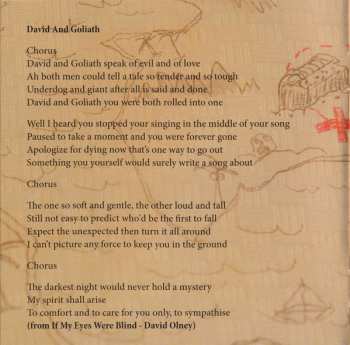 David And Goliath
Chorus
David and Goliath speak of evil and of love
Ah both men could tell a tale so tender and so tough
Underdog and giant after all is said and done
David and Goliath you were both rolled into one
Well I heard you stopped your singing in the middle of your song
Paused to take a moment and you were forever gone
Apologize for dying now that's one way to go out
Something you yourself would surely write a song about
Chorus
The one so soft and gentle, the other loud and tall
Still not easy to predict who'd be the first to fall
Expect the unexpected then turn it all around
I can't picture any force to keep you in the ground
Chorus
The darkest night would never hold a mystery
My spirit shall arise
To comfort and to care for you only, to sympathise
(from If My Eyes Were Blind - David Olney)